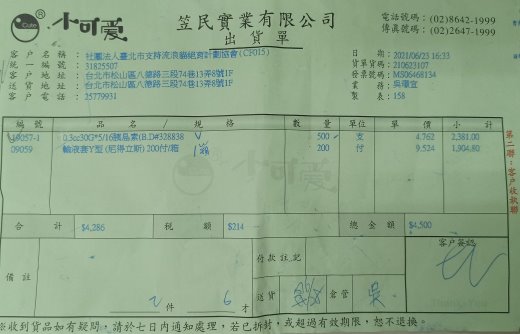 小可愛
笠民實業有限公司
出貨單
電話號碼：(02)8642-1999
傳真號碼：(02)2647-1999
客戶名稱：社團法人臺北市支持流浪貓絕育計劃協會(CF015)
統一編號：31825507
客戶地址：台北市松山區八德路三段74巷13弄8號1F
送貨地址：台北市松山區八德路三段74巷13弄8號1F
客戶電話：25779931
日期：2021/06/23 16:33
貨單號碼：210623107
發票號碼：MS06468134
業務：吳澤宜
製表：158
編號 品名／規格 數量 單位 單價 小計
19057-1 0.3cc30G*5/16胰島素(B.D#328838 500 支 4.762 2,381.00
09059 輸液套Y型 (尼得立斯) 200付/箱 1箱 200 付 9.524 1,904.80
小可愛
第二聯：客戶收執聯
合計 $4,286 稅額 $214 總金額 $4,500
備註
付款註記
客戶簽認
2件 6才
送貨 倉管 吳
Thank You
※收到貨品如有疑問，請於七日內通知處理，若已拆封，或超過有效期限，恕不退換。